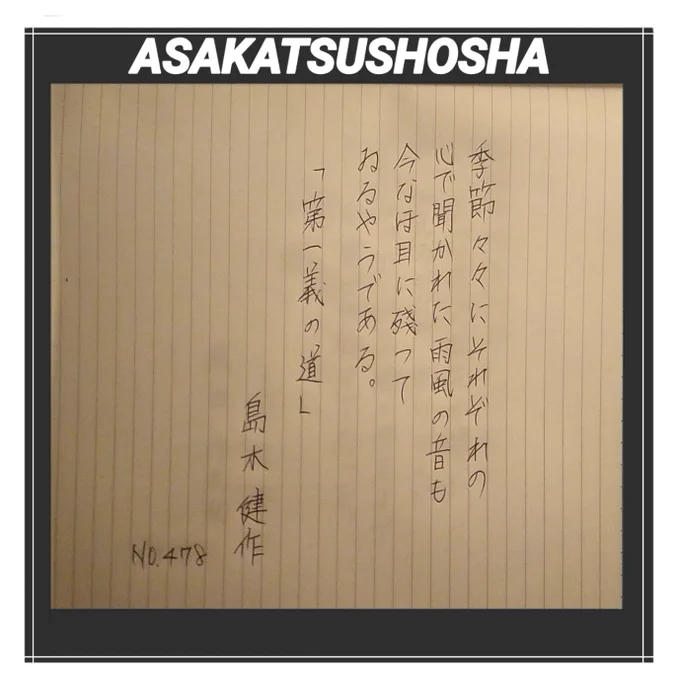 ASAKATSUSHOSHA
季節々々にそれぞれの
心で聞かれた雨風の音も
今なほ耳に残って
ゐるやうである。
「第一義の道」
島木健作
NO.478